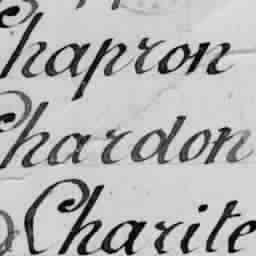 Chapron
Chardon
Charite